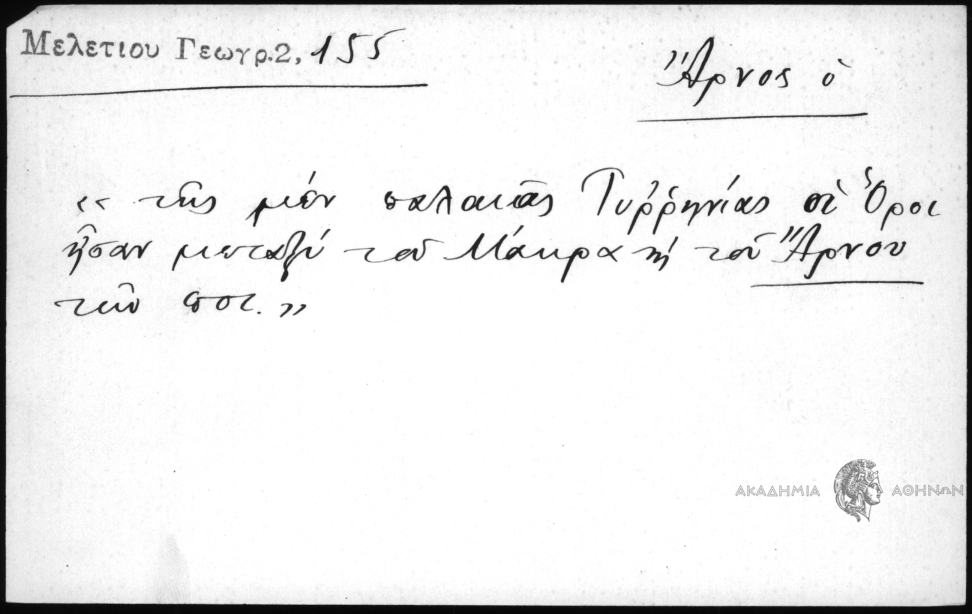 Μελετιου Γεωγρ.2, 155
Ἄρνος ὁ
«της μέν παλαιᾶς Τυῤῥηνίας οἱ Ὅροι
ἦσαν μεταξύ τοῦ Μάκρα κỳ τοῦ Ἄρνου
τῶν ποτ.»
ΑΚΑΔΗΜΙΑ ΑΘΗΝΩΝ